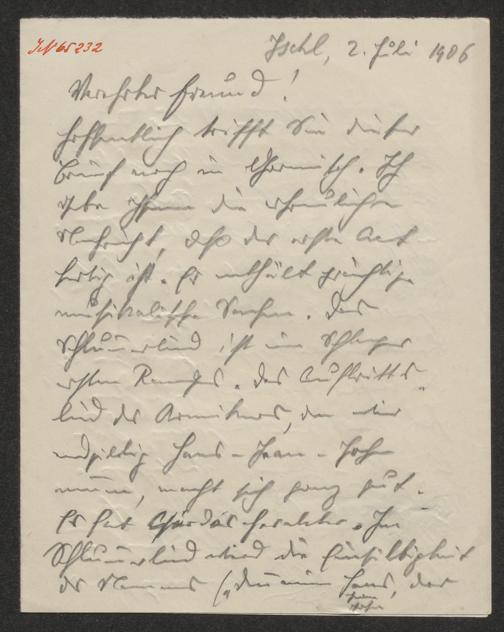 IN 65232
Ischl, 2. Juli 1906
Verehrter Freund!
Hoffentlich trifft Sie dieser
Brief noch in Garmisch. Ich
habe Ihnen die erfreuliche
Nachricht, daß der erste Act
fertig ist. Er enthält prächtige
musikalische Sachen. Das
Schlummerlied ist ein Schlager
ersten Ranges. Das Auftritts-
lied des Armeniers, den wir
endgiltig Hans-Jean-John
nennen, macht sich ganz gut.
Er hat Csárdás Charakter. Im
Schlummerlied wird die Einsilbigkeit
des Namens („ Hans, der